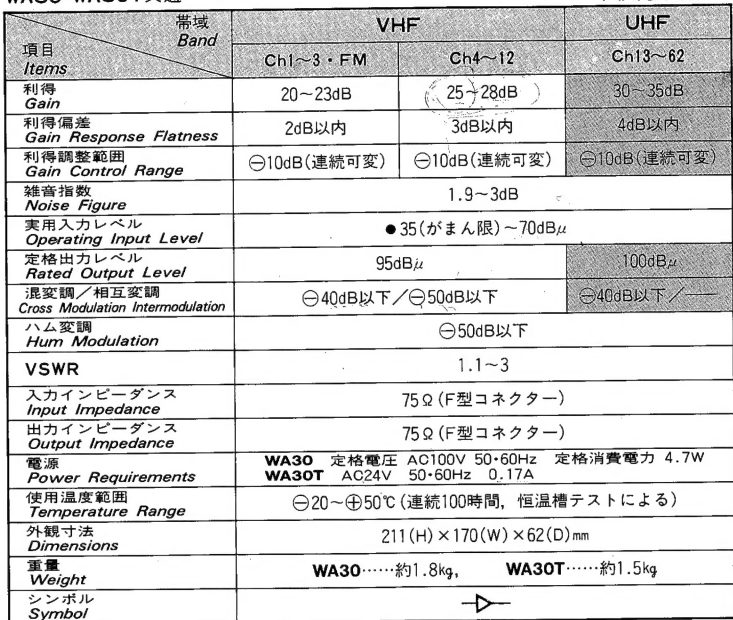 帯域
Band
VHF
UHF
項目
Items
Ch1~3・FM
Ch4~12
Ch13~62
利得
Gain
20~23dB
25~28dB
30~35dB
利得偏差
Gain Response Flatness
2dB以内
3dB以内
4dB以内
利得調整範囲
Gain Control Range
⊖10dB(連続可変)
⊖10dB(連続可変)
⊖10dB(連続可変)
雑音指数
Noise Figure
1.9~3dB
実用入力レベル
Operating Input Level
●35(がまん限)~70dBμ
定格出力レベル
Rated Output Level
95dBμ
100dBμ
混変調/相互変調
Cross Modulation Intermodulation
⊖40dB以下/⊖50dB以下
⊖40dB以下/――
ハム変調
Hum Modulation
⊖50dB以下
VSWR
1.1~3
入力インピーダンス
Input Impedance
75Ω(F型コネクター)
出力インピーダンス
Output Impedance
75Ω(F型コネクター)
電源
Power Requirements
WA30 定格電圧 AC100V 50・60Hz 定格消費電力 4.7W
WA30T AC24V 50・60Hz 0.17A
使用温度範囲
Temperature Range
⊖20~⊕50℃(連続100時間, 恒温槽テストによる)
外観寸法
Dimensions
211(H)×170(W)×62(D)mm
重量
Weight
WA30……約1.8kg, WA30T……約1.5kg
シンボル
Symbol